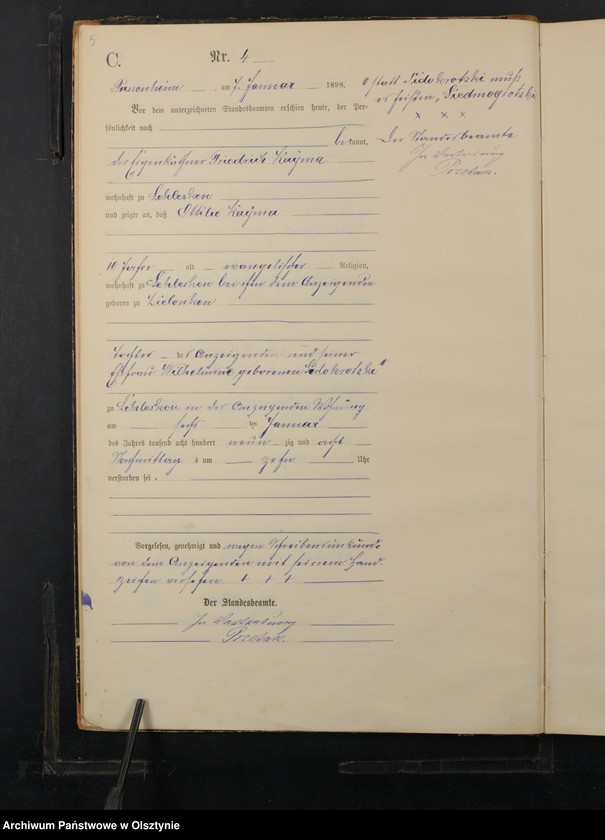 5
C.
Nr. 4
Passenheim, am 7. Januar 1898.
Vor dem unterzeichneten Standesbeamten erschien heute, der Per-
sönlichkeit nach
bekannt,
der Eigenkäthner Friedrich Kayma
wohnhaft zu Schlesken
und zeigte an, daß Ottilie Kayma
10 Jahre alt evangelischer Religion,
wohnhaft zu bei ihm dem Anzeigenden
geboren zu Zielonken
Tochter des Anzeigenden und seiner
Ehefrau Wilhelmine geborenen
zu in des Anzeigenden Wohnung
am sechsten Januar
des Jahres tausend acht hundert neunzig und acht
Nachmittags um zehn Uhr
verstorben sei.
Vorgelesen, genehmigt und wegen Schreibensunkunde
von dem Anzeigenden mit seinem Hand-
zeichen versehen + + +
Der Standesbeamte.
In Vertretung
statt muß
es heißen "
× × ×
Der Standesbeamte
In Vertretung
Archiwum Państwowe w Olsztynie